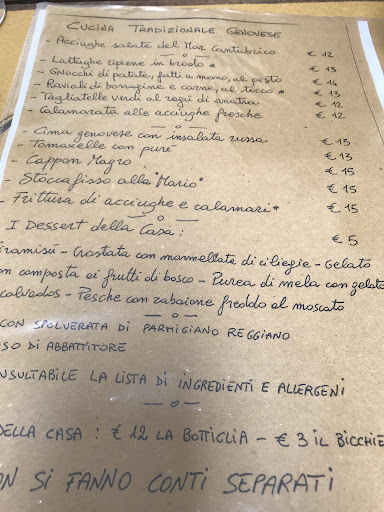 CUCINA TRADIZIONALE GENOVESE
- Acciughe salate del Mar Cantabrico € 12
- Lattughe ripiene in brodo * € 13
- Gnocchi di patate, fatti a mano, al pesto € 14
- Ravioli di borragine e carne, al tocco * € 13
- Tagliatelle verdi al ragù di anatra € 12
- Calamarata alle acciughe fresche € 12
- Cima genovese con insalata russa € 13
- Tomaxelle con purè € 13
- Cappon Magro € 15
- Stoccafisso alla "Mario" € 15
- Frittura di acciughe e calamari * € 15
I Dessert della Casa: € 5
iramisù - Crostata con marmellata di ciliegie - Gelato
on composta ai frutti di bosco - Purea di mela con gelato
calvados - Pesche con zabaione freddo al moscato
CON SPOLVERATA DI PARMIGIANO REGGIANO
USO DI ABBATTITORE
NSULTABILE LA LISTA DI INGREDIENTI E ALLERGENI
DELLA CASA : € 12 LA BOTTIGLIA - € 3 IL BICCHIE
ON SI FANNO CONTI SEPARATI